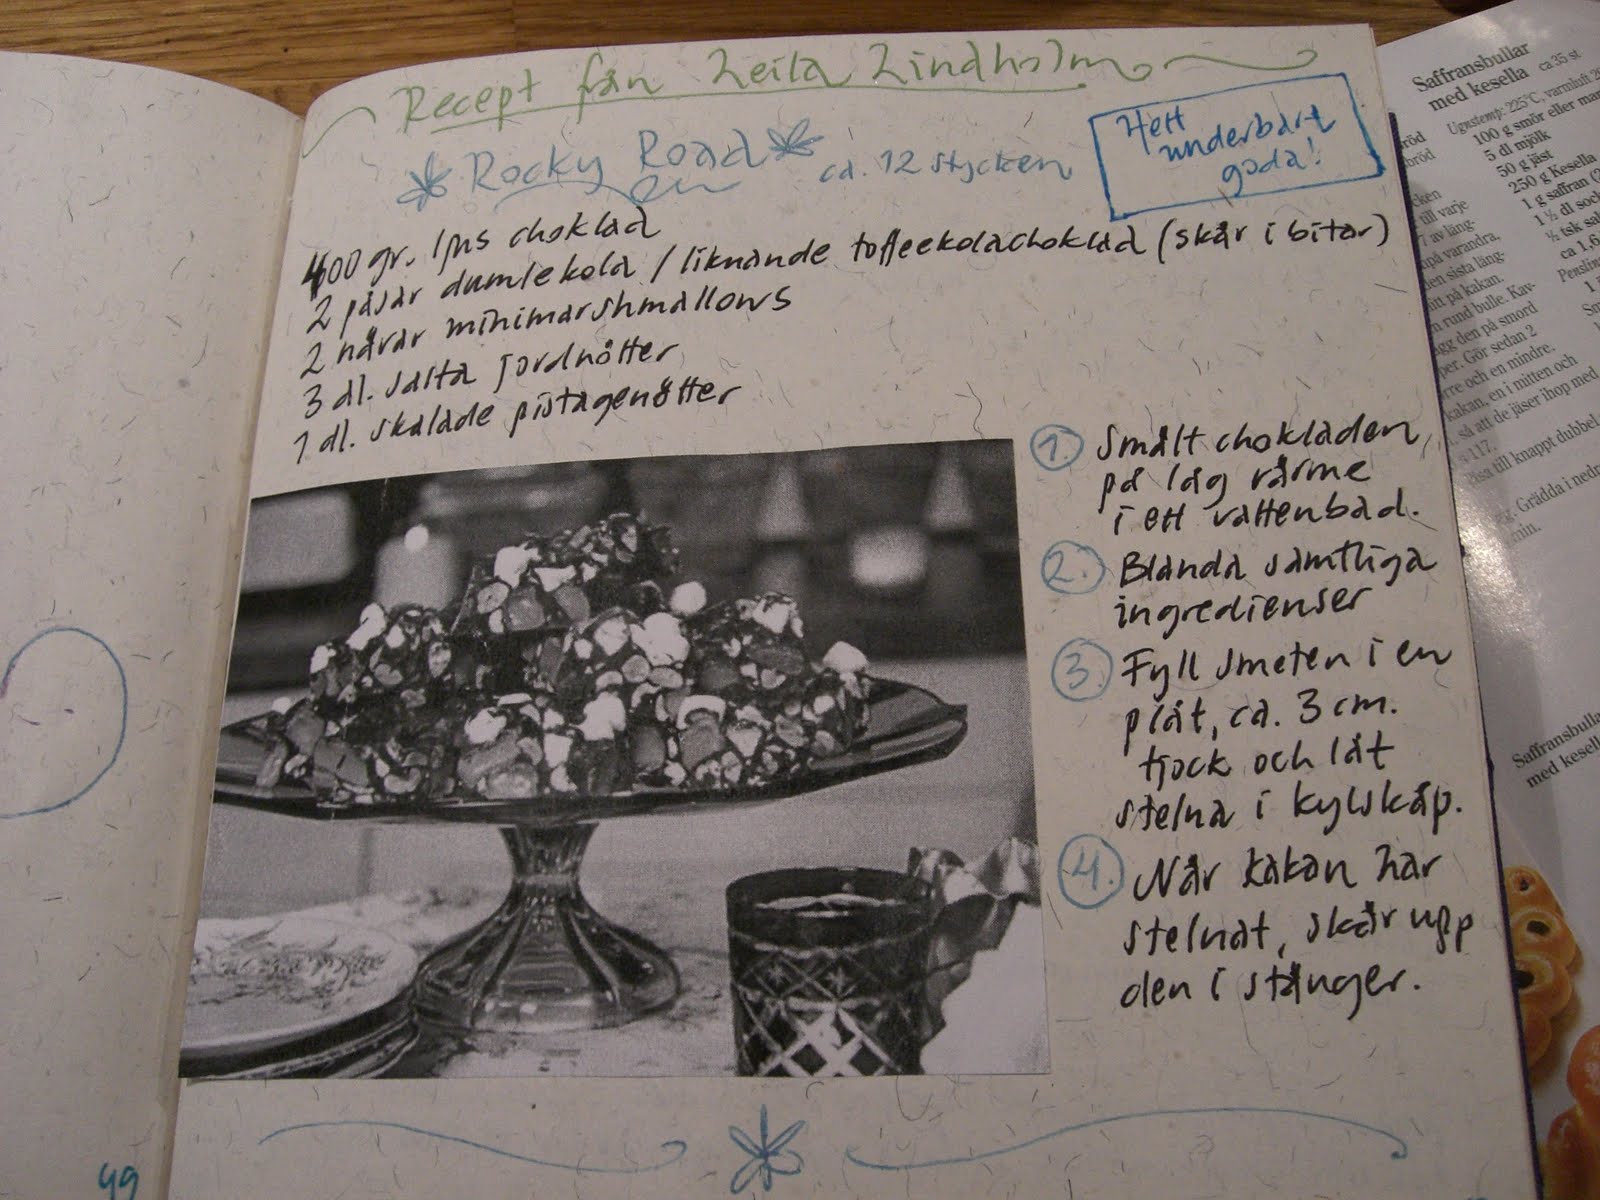 Recept från Leila Lindholm
Rocky Road
ca. 12 stycken
Helt
underbart
goda!
400 gr. ljus choklad
2 påsar dumlekola / liknande toffeekolachoklad (skär i bitar)
2 nävar minimarshmallows
3 dl. salta jordnötter
1 dl. skalade pistagenötter
1. Smält chokladen,
på låg värme
i ett vattenbad.
2. Blanda samtliga
ingredienser
3. Fyll smeten i en
plåt, ca. 3 cm.
tjock och låt
stelna i kylskåp.
4. När kakan har
stelnat, skär upp
den i stänger.
49
Saffransbullar
med kesella ca 35 st
Ugnstemp: 225°C, varmluft
100 g smör eller mar
5 dl mjölk
50 g jäst
250 g Kesella
1 g saffran
1 ½ dl sock
½ tsk sal
till varje
av läng-
på varandra,
den sista läng-
på kakan.
rund bulle. Kav-
ägg den på smord
per. Gör sedan 2
rre och en mindre.
kakan, en i mitten och
så att de jäser ihop med
117.
till knappt dubbel
Grädda i nedr
min.
Saffransbulla
med kesell